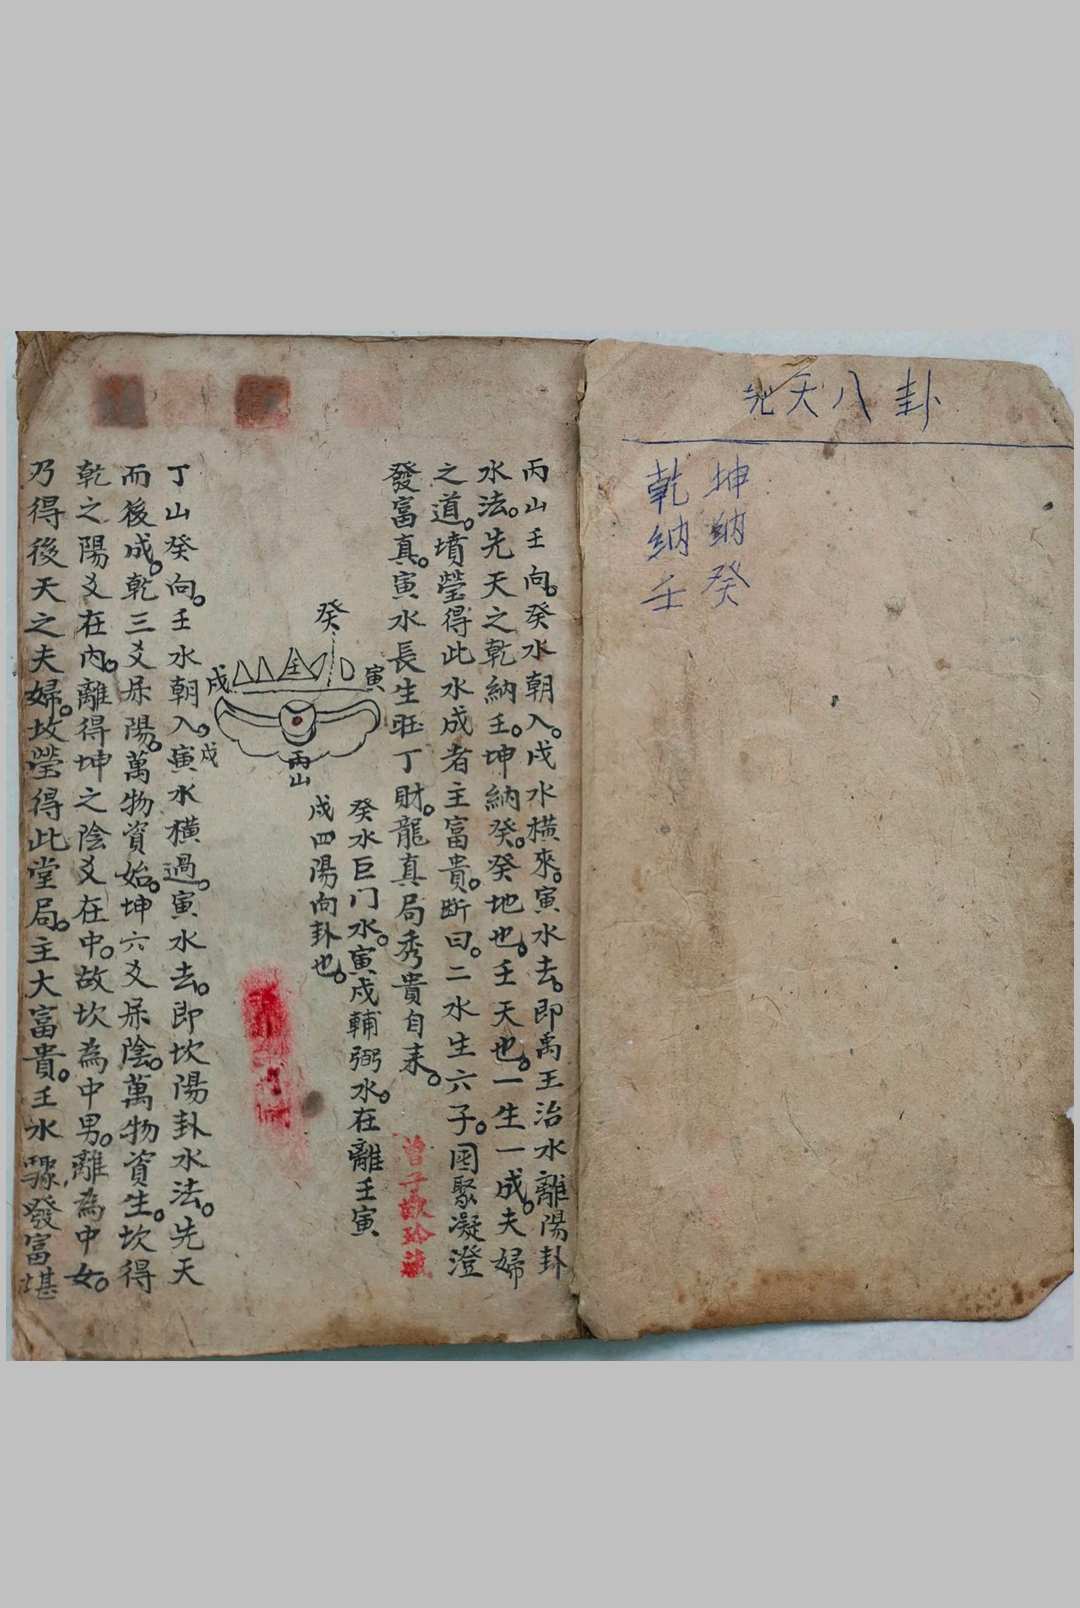 先天八卦
坤納癸
乾納壬
丙山壬向。癸水朝入。戌水橫來。寅水去。即禹王治水離陽卦
水法。先天之乾納壬。坤納癸。癸地也。壬天也。一生一成。夫婦
之道。墳塋得此水成者主富貴。斷曰。二水生六子。團聚凝澄
發富真。寅水長生旺丁財。龍真局秀貴自来。
曾子敬珍藏
癸
寅
壬
戌
丙山
癸水巨门水。寅戌輔弼水。在離壬寅
戌四陽向卦也。
丁山癸向。壬水朝入。寅水橫過。寅水去。即坎陽卦水法。先天
戌
而後成。乾三爻屬陽。萬物資始。坤六爻屬陰。萬物資生。坎得
乾之陽爻在內。離得坤之陰爻在中。故坎為中男。離為中女。
乃得後天之夫婦。坟塋得此堂局。主大富貴。壬水驟發富堪